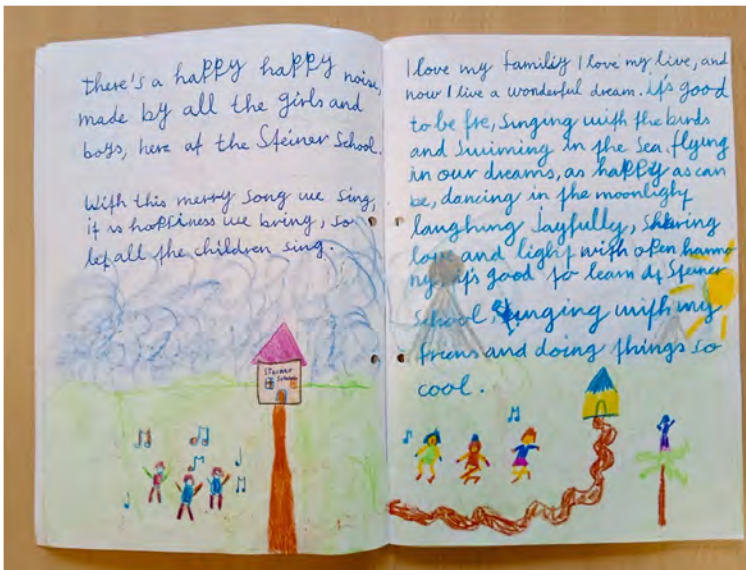 there's a happy happy noise,
made by all the girls and
boys, here at the Steiner School.
With this merry song we sing,
it is happiness we bring, so
let all the children sing.
Steiner
School
I love my familiy I love my live, and
now I live a wonderful dream. it's good
to be fre, singing with the birds
and swiming in the sea. flying
in our dreams, as happy as can
be, dancing in the moonlight
laughing Jayfully, sharing
love and light with open harmo
ny it's good to learn at Steiner
School, singing with my
frens and doing things so
cool.